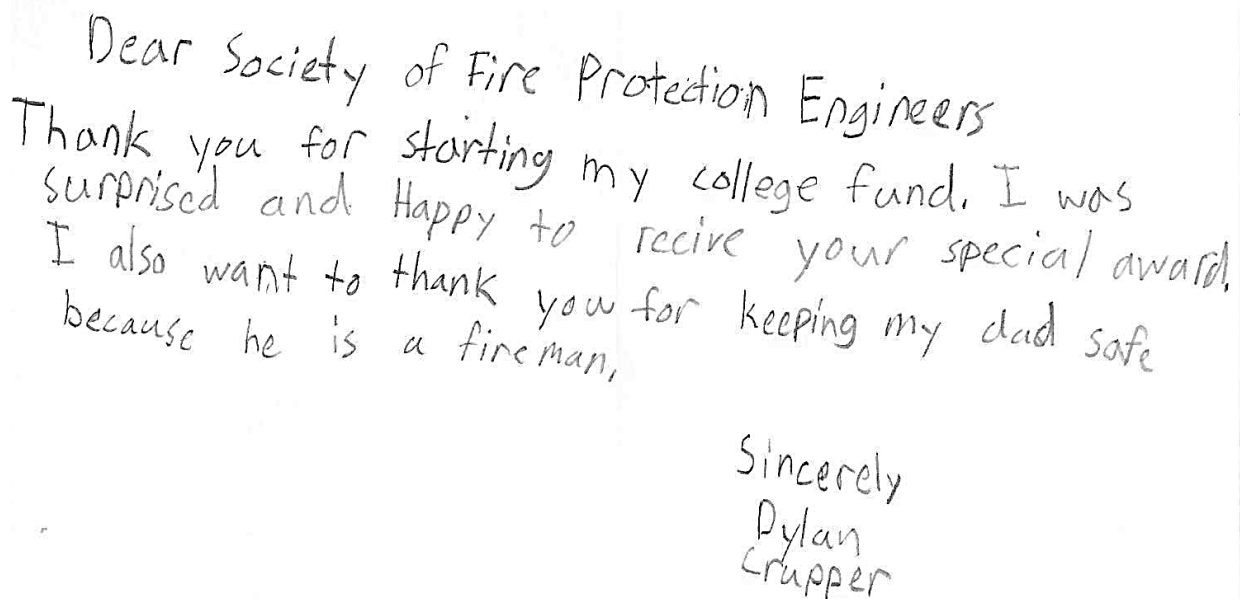 Dear Society of Fire Protection Engineers
Thank you for starting my college fund. I was
surprised and Happy to recive your special award.
I also want to thank you for keeping my dad safe
because he is a fireman,
Sincerely
Dylan
Crupper